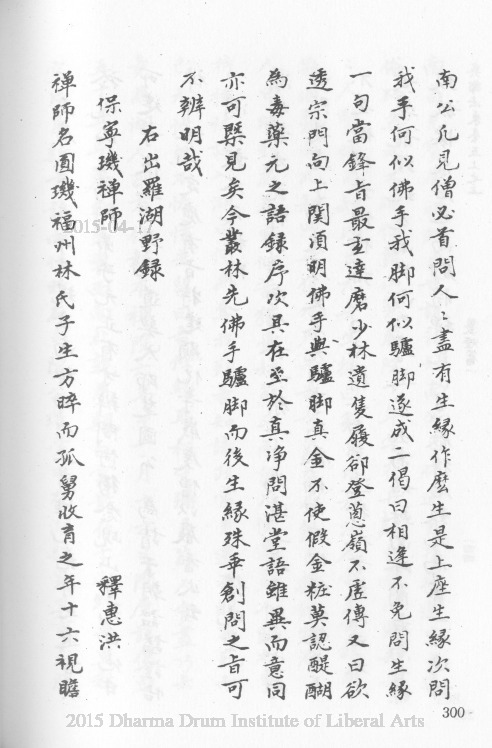 南公凡見僧必首問人〻盡有生緣作麼生是上座生緣次問
我手何似佛手我脚何似驢脚遂成二偈曰相逢不免問生緣
一句當鋒旨最玄達磨少林遺隻履卻登蔥嶺不虛傳又曰欲
透宗門向上関須明佛手與驢脚真金不使假金粧莫認醍醐
為毒藥元之語録序次具在至於真净問湛堂語雖異而意同
亦可槩見矣今叢林先佛手驢脚而後生緣殊乖創問之旨可
不辨明哉
右出羅湖野録
保寧璣禪師 釋惠洪
禅師名圎璣福州林氏子生方晬而孤舅收育之年十六視瞻
300
2015-04-17
2015 Dharma Drum Institute of Liberal Arts